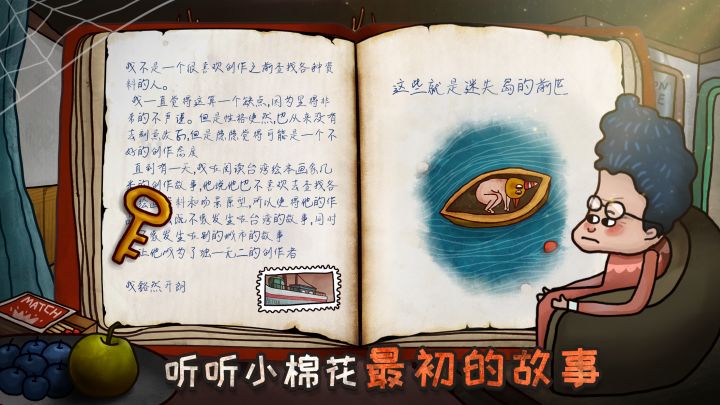 我不是一个很喜欢创作之前查找各种资
料的人。
我一直觉得这算一个缺点,因为显得非
常的不严谨。但是性格使然,也从来没有
去刻意改
但是隐隐觉得可能是一个不
好的创作态度
直到有一天,我在阅读台湾绘本画家几
米的创作故事,他说他也不喜欢去查找各
料和场景原型,所以使得他的作
既不像发生在台湾的故事,同时
像发生在别的城市的故事
他成为了独一无二的创作者
我豁然开朗
这些就是迷失岛的前因
MATCH
听听小棉花最初的故事